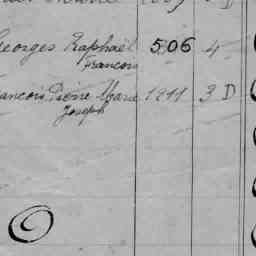 Georges Raphaël 506 4
François
François Pierre Marie 1911 3 D
Joseph